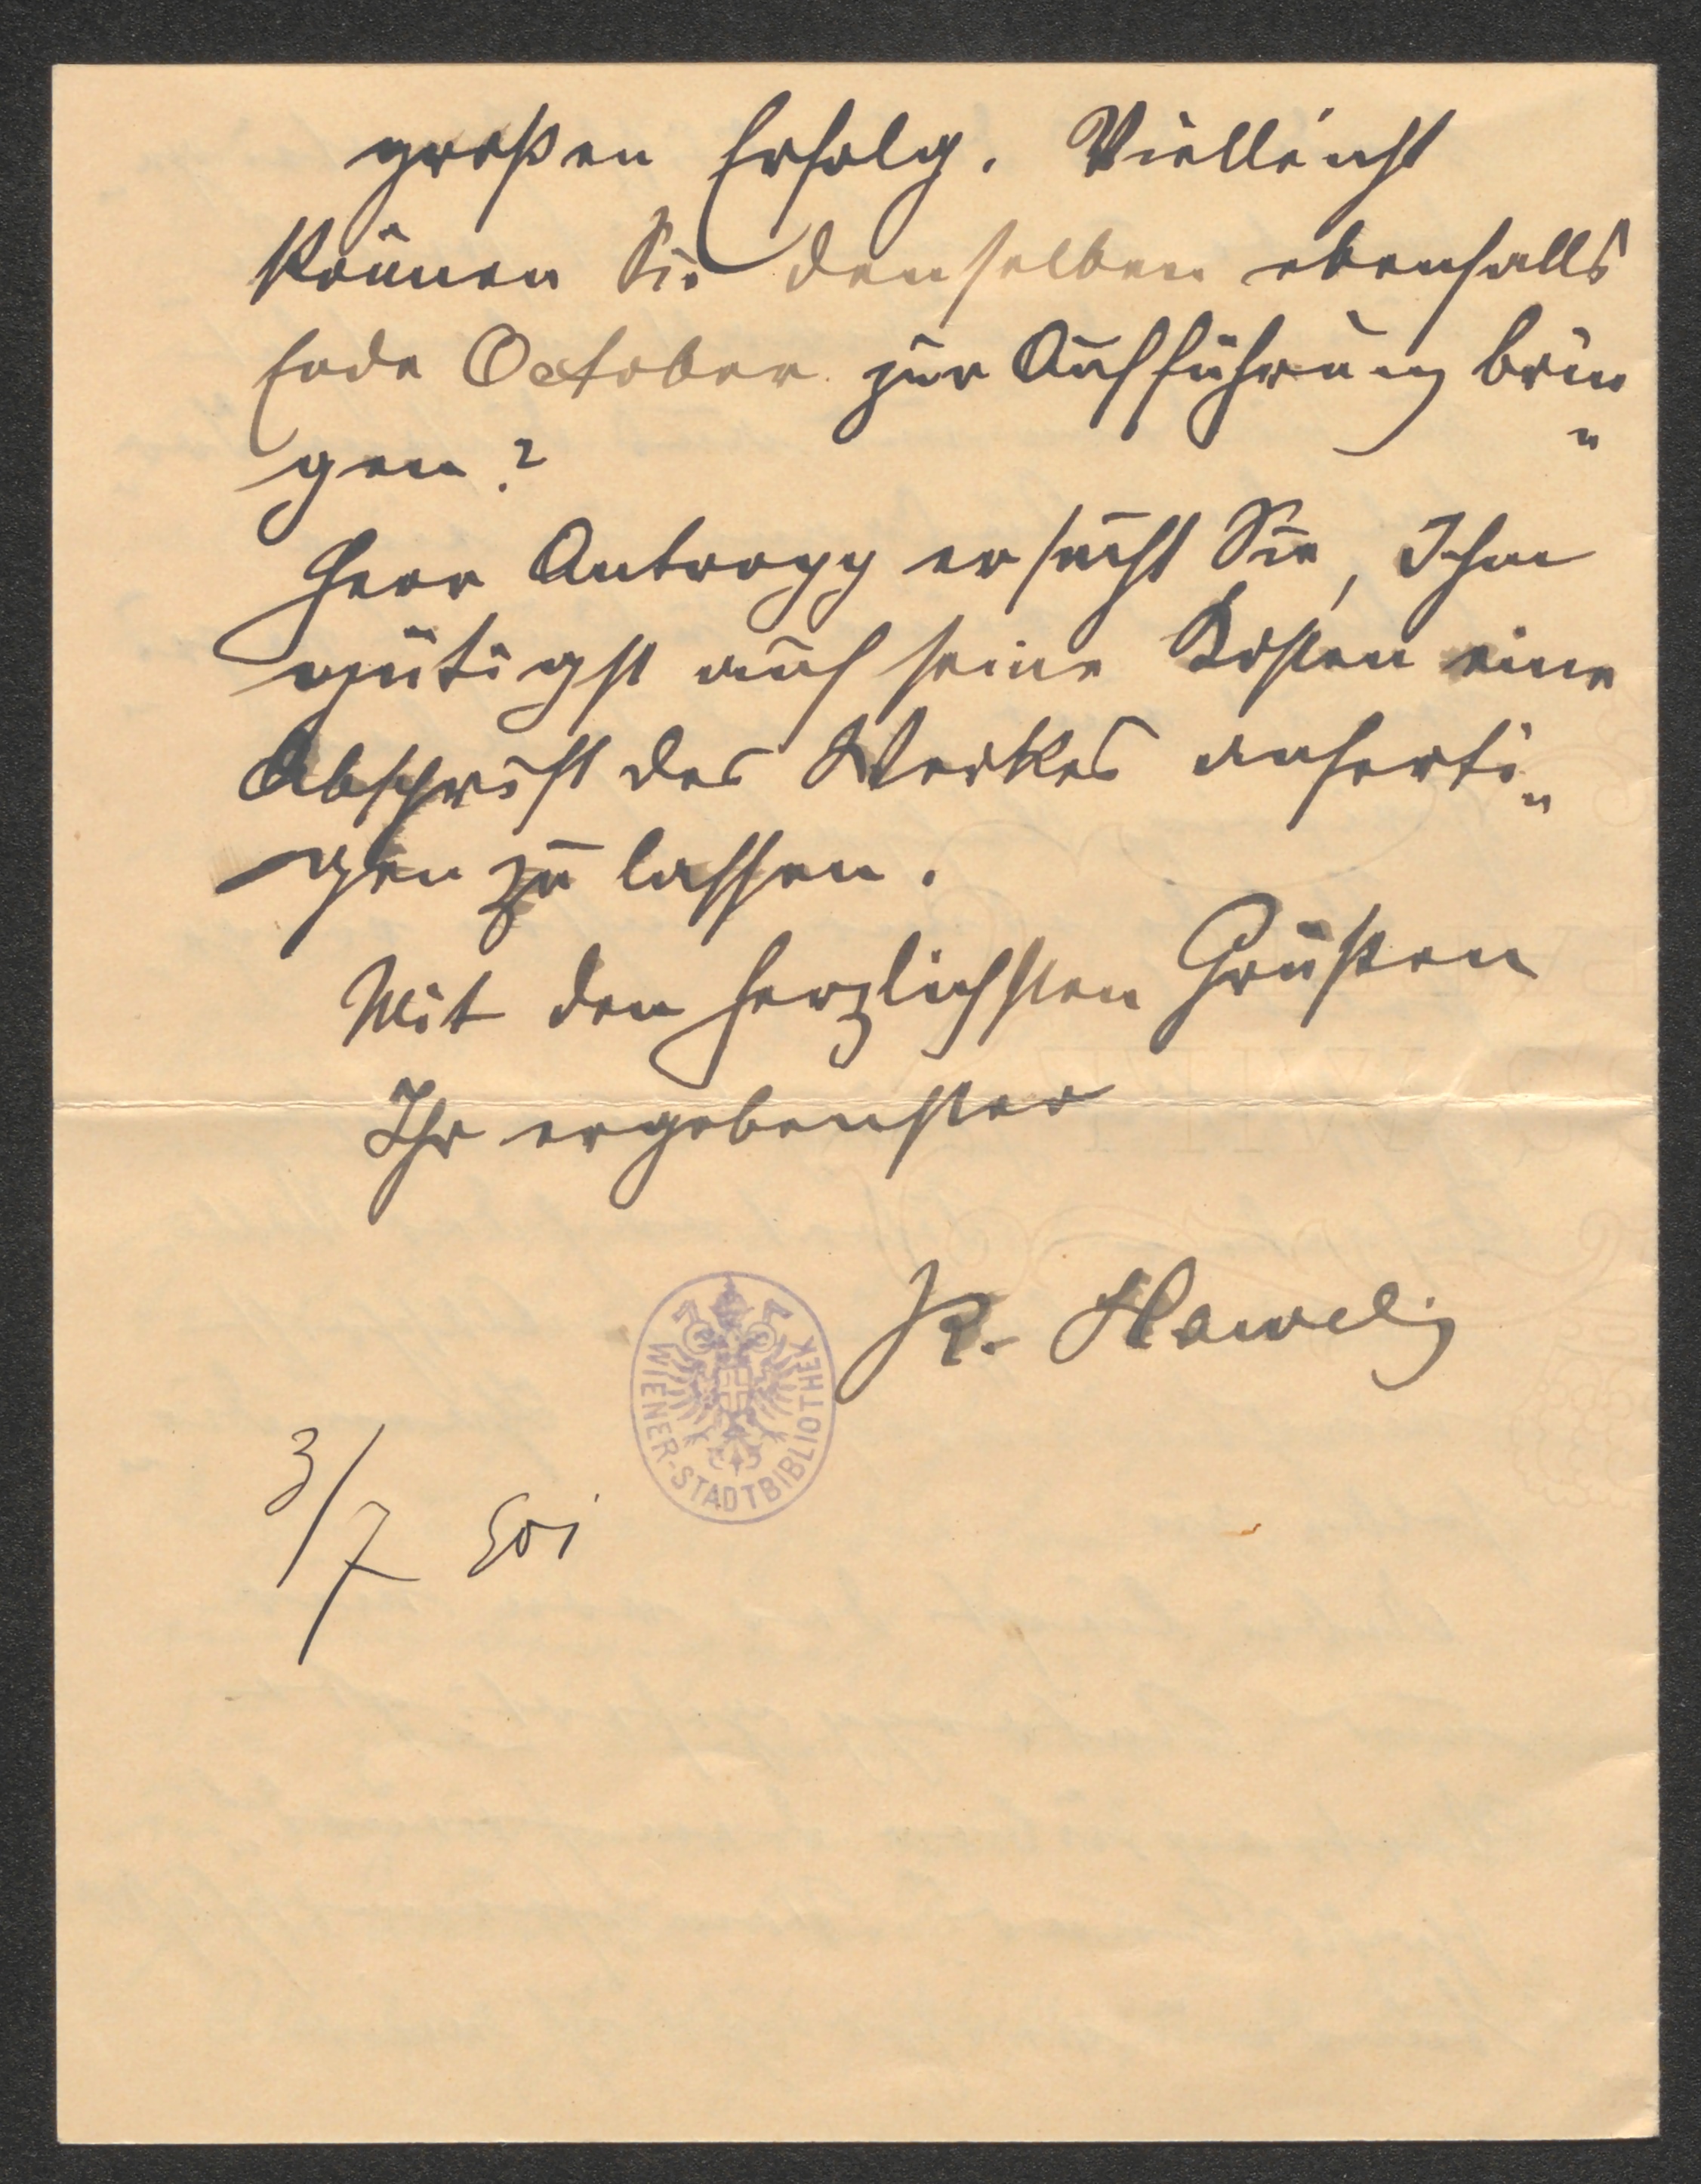 großen Erfolg. Vielleicht
können Sie denselben ebenfalls
Ende October zur Aufführung brin"
gen?
Herr Antropp ersucht Sie, Ihm
gütigst auf seine Kosten eine
Abschrift des Werkes anferti"
gen zu lassen.
Mit den herzlichsten Grüßen
Ihr ergebenster
R. Hawel
WIENER-STADTBIBLIOTHEK
3/7 901